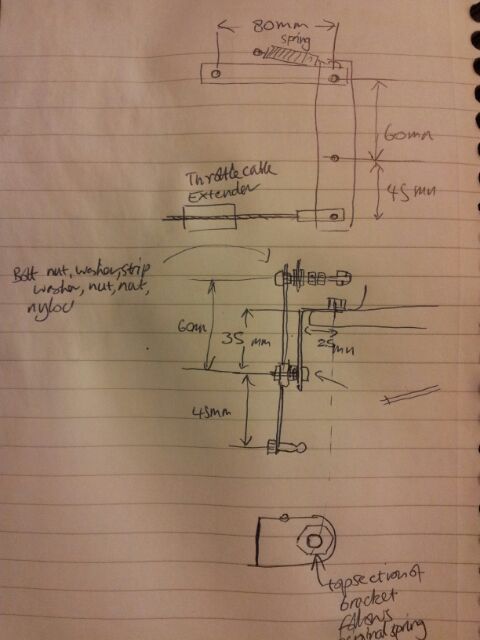 80mm
spring
60mm
45mm
Throttle cable
Extender
Bolt nut, washer, strip
washer, nut, nut,
nyloc
60mm
35 mm
25mm
45mm
top section of
bracket
follows
spring